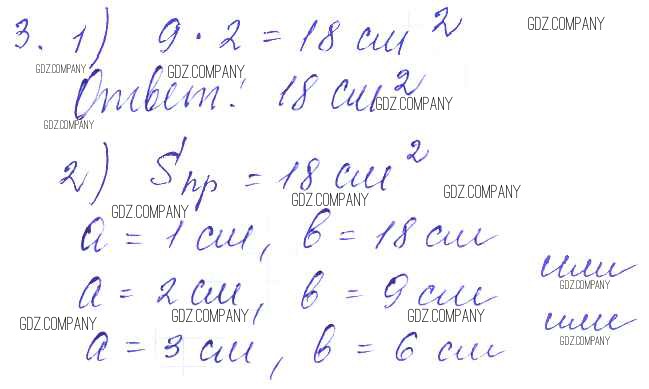 3. 1) 9 · 2 = 18 см² GDZ.COMPANY
GDZ.COMPANY GDZ.COMPANY
Ответ: 18 см² GDZ.COMPANY
GDZ.COMPANY
2) Sпр = 18 см² GDZ.COMPANY
GDZ.COMPANY GDZ.COMPANY
a = 1 см, в = 18 см
или
a = 2 см, в = 9 см GDZ.COMPANY
GDZ.COMPANY GDZ.COMPANY GDZ.COMPANY
или
a = 3 см, в = 6 см GDZ.COMPANY